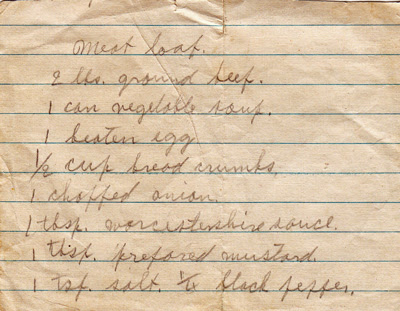 Meat loaf.
2 lbs. ground beef.
1 can vegetable soup.
1 beaten egg
1/2 cup bread crumbs.
1 chopped onion.
1 tbsp. worcestershire sauce.
1 tbsp. prepared mustard.
1 tsp. salt. 1/4 black pepper.